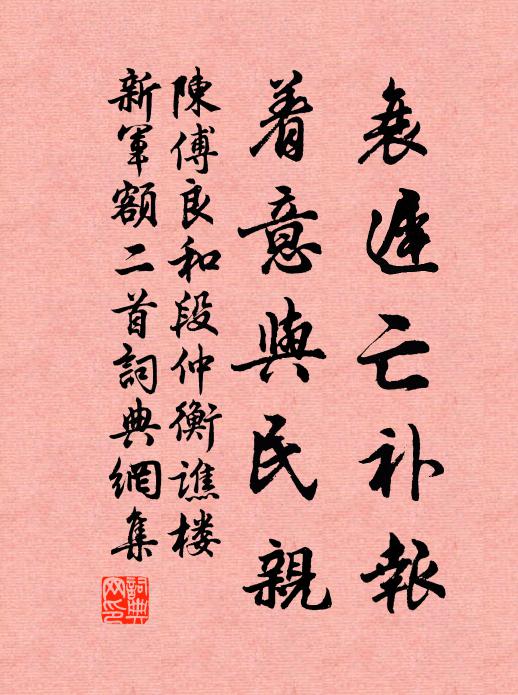 衰遲亡补報
着意與民親
陳傅良和段仲衡譙楼
新軍額二首詞典網集
詞典網印